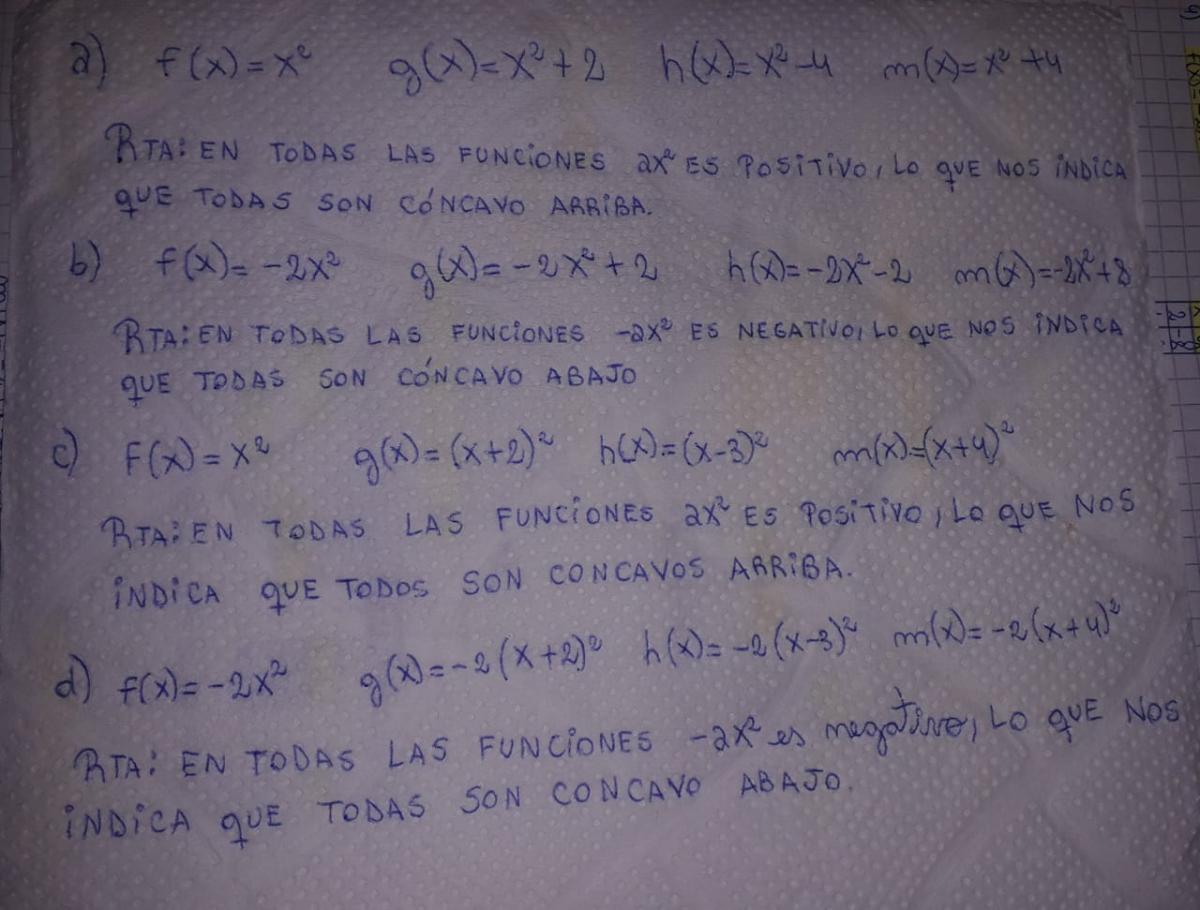 a) f(x)=x² g(x)=x²+2 h(x)=x²-4 m(x)=x²+4
RTA: EN TODAS LAS FUNCIONES ax² ES POSITIVO, LO QUE NOS INDICA
QUE TODAS SON CÓNCAVO ARRIBA.
b) f(x)=-2x² g(x)=-2x²+2 h(x)=-2x²-2 m(x)=-2x²+8
RTA: EN TODAS LAS FUNCIONES -ax² ES NEGATIVO, LO QUE NOS INDICA
QUE TODAS SON CÓNCAVO ABAJO
c) F(x)=x² g(x)=(x+2)² h(x)=(x-3)² m(x)=(x+4)²
RTA: EN TODAS LAS FUNCIONES ax² ES POSITIVO, LO QUE NOS
INDICA QUE TODOS SON CONCAVOS ARRIBA.
d) f(x)=-2x² g(x)=-2(x+2)² h(x)=-2(x-3)² m(x)=-2(x+4)²
RTA: EN TODAS LAS FUNCIONES -ax² es negativo, LO QUE NOS
INDICA QUE TODAS SON CONCAVO ABAJO.